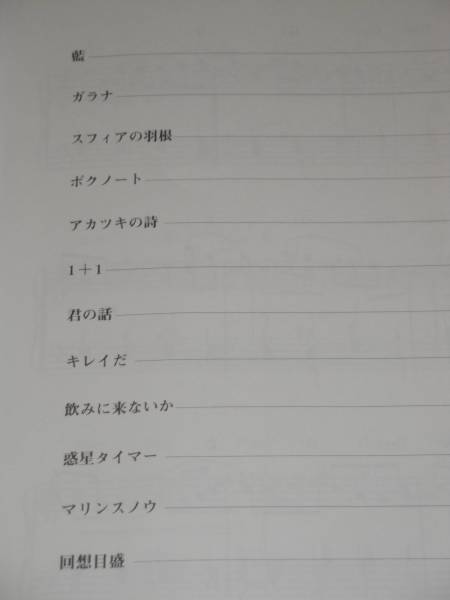 藍
ガラナ
スフィアの羽根
ボクノート
アカツキの詩
1+1
君の話
キレイだ
飲みに来ないか
惑星タイマー
マリンスノウ
回想目盛